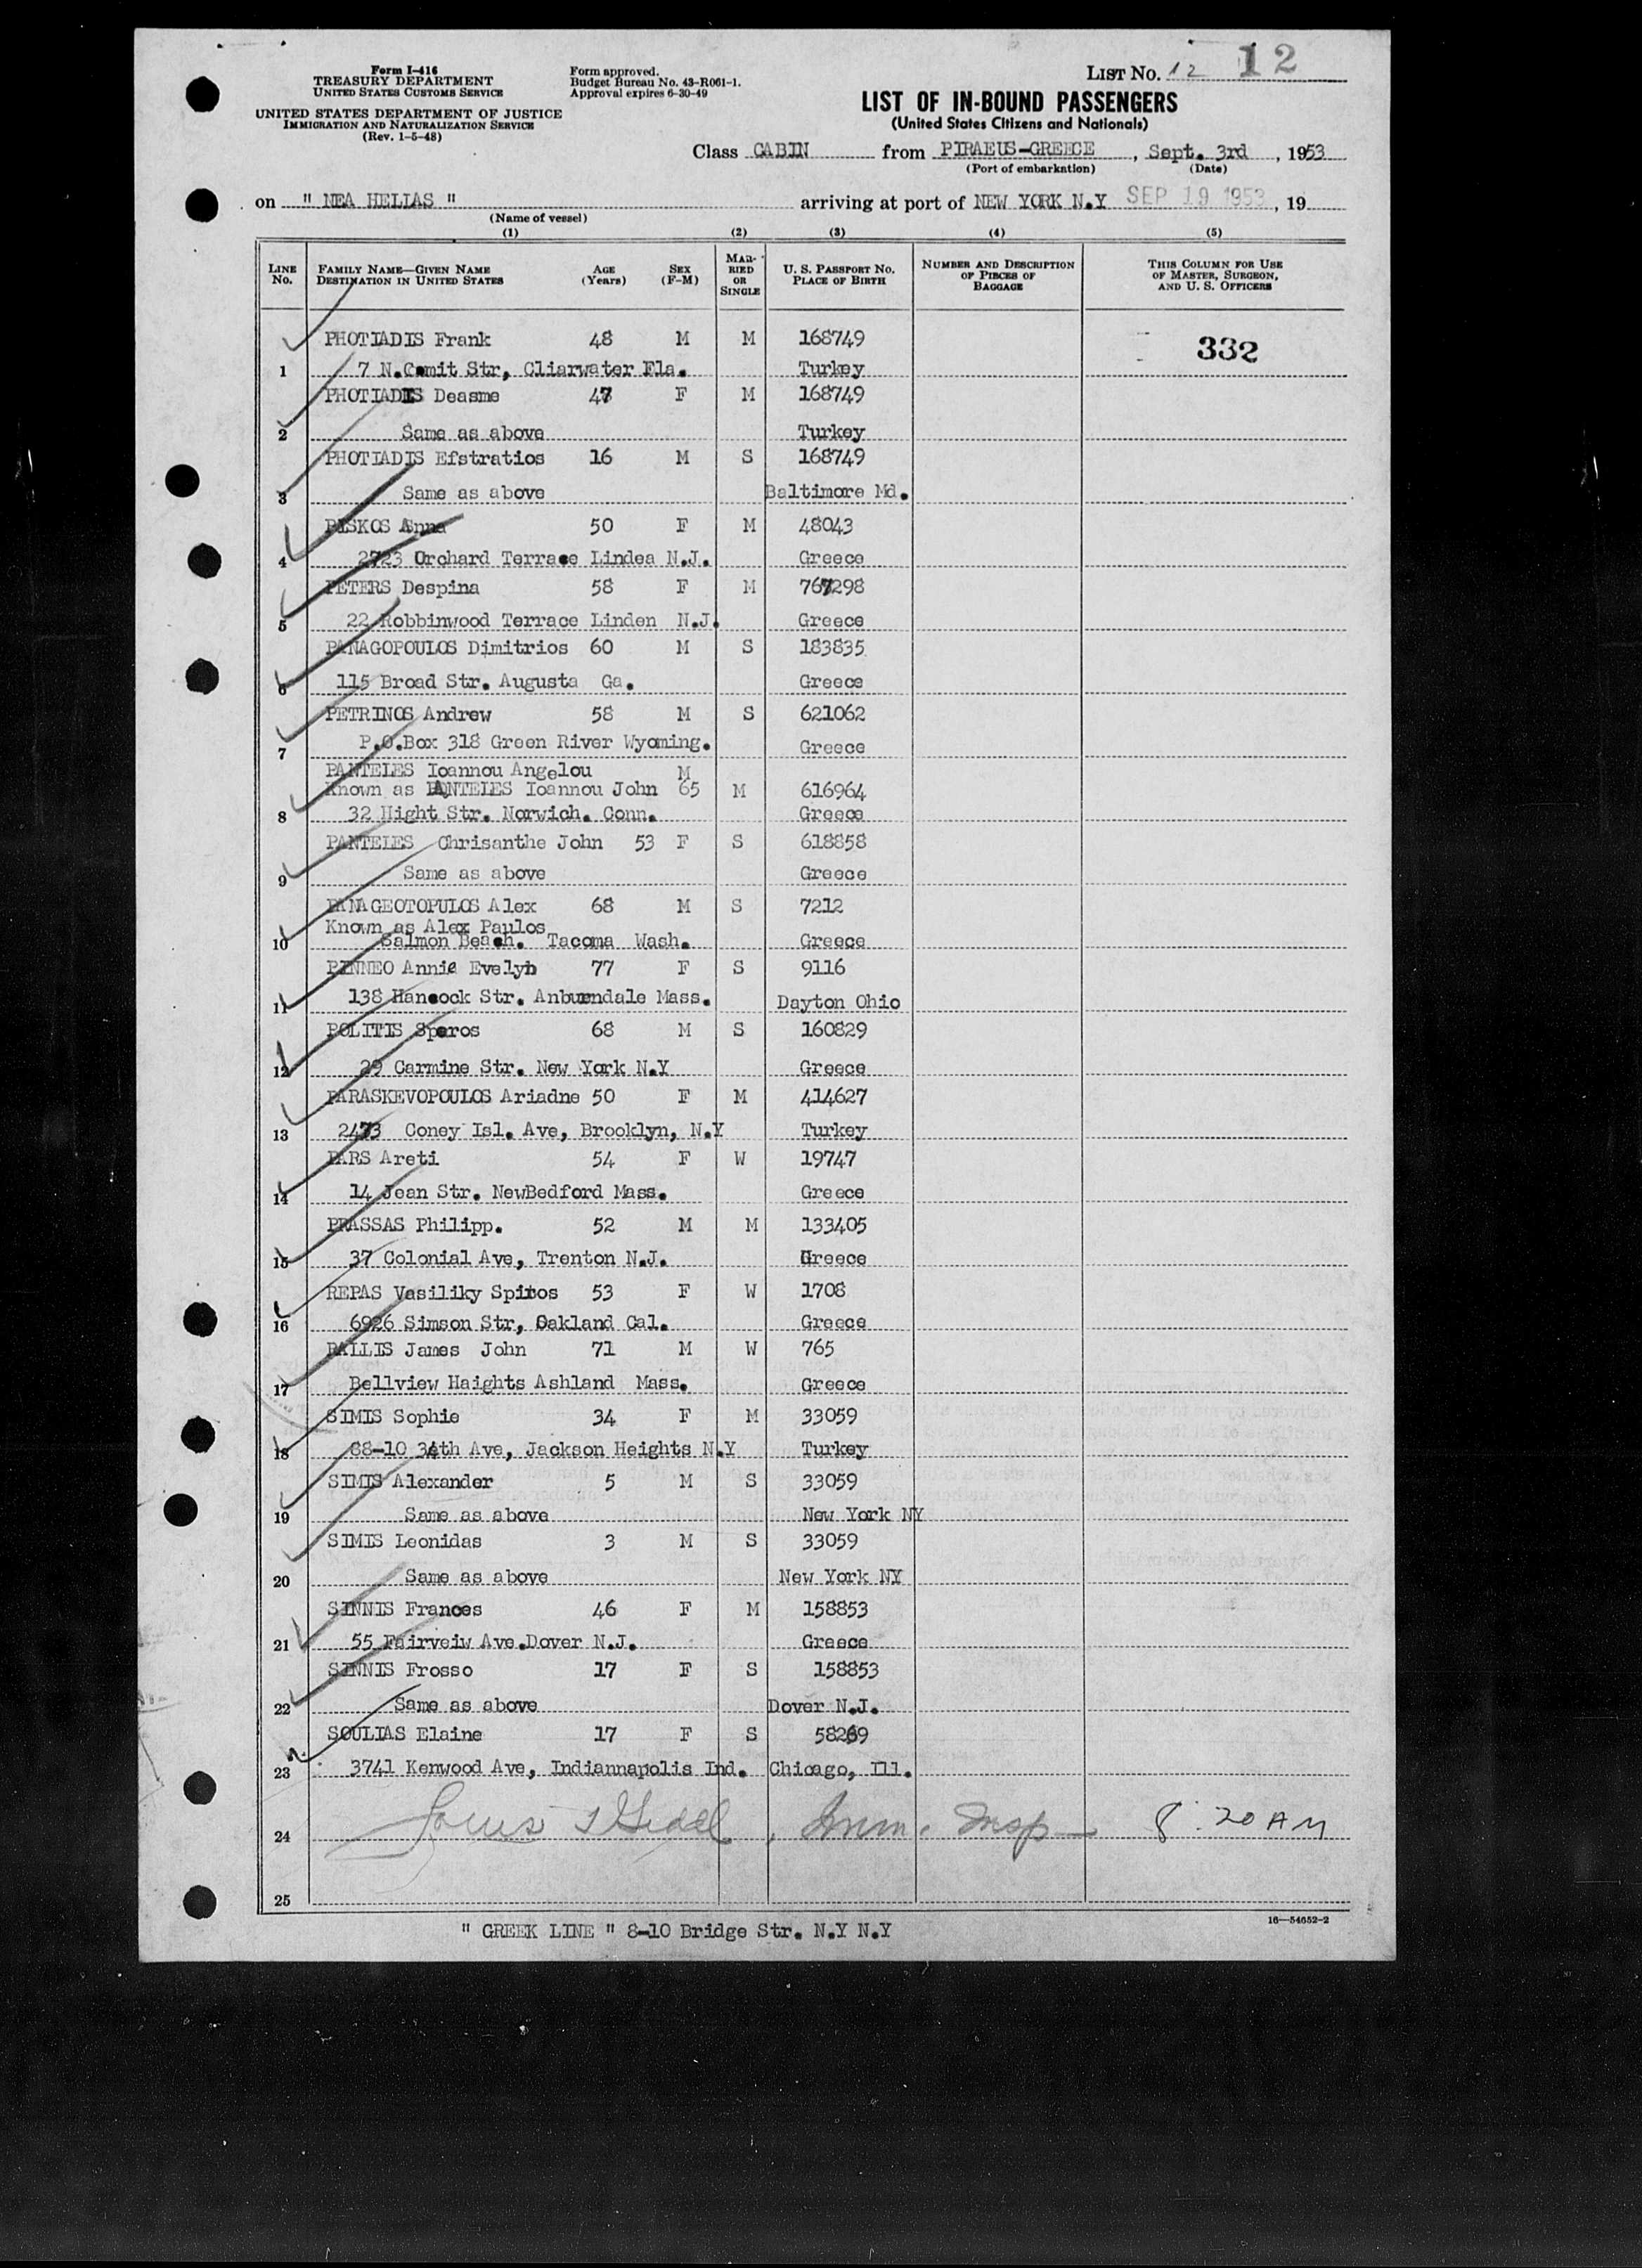 Form I-416
TREASURY DEPARTMENT
UNITED STATES CUSTOMS SERVICE
UNITED STATES DEPARTMENT OF JUSTICE
IMMIGRATION AND NATURALIZATION SERVICE
(Rev. 1-5-48)
Form approved.
Budget Bureau No. 43-R061-1.
Approval expires 6-30-49
LIST NO. 12 12
LIST OF IN-BOUND PASSENGERS
(United States Citizens and Nationals)
Class CABIN from PIRAEUS-GREECE, Sept. 3rd, 1953
(Port of embarkation) (Date)
on " NEA HELIAS " arriving at port of NEW YORK N.Y SEP 19 1953, 19
(Name of vessel)
(1) (2) (3) (4) (5)
LINE NO. FAMILY NAME—GIVEN NAME DESTINATION IN UNITED STATES AGE (Years) SEX (F-M) MARRIED OR SINGLE U. S. PASSPORT NO. PLACE OF BIRTH NUMBER AND DESCRIPTION OF PIECES OF BAGGAGE THIS COLUMN FOR USE OF MASTER, SURGEON, AND U. S. OFFICERS
PHOTIADIS Frank 48 M M 168749 332
1 7 N.Comit Str, Cliarwater Fla. Turkey
PHOTIADIS Deasme 47 F M 168749
2 Same as above Turkey
PHOTIADIS Efstratios 16 M S 168749
3 Same as above Baltimore Md.
PISKOS Anna 50 F M 48043
4 2723 Orchard Terrace Lindea N.J. Greece
PETERS Despina 58 F M 767298
5 22 Robbinwood Terrace Linden N.J. Greece
PANAGOPOULOS Dimitrios 60 M S 183835
6 115 Broad Str. Augusta Ga. Greece
PETRINOS Andrew 58 M S 621062
7 P.O.Box 318 Green River Wyoming. Greece
PANTELES Ioannou Angelou M
Known as PANTELES Ioannou John 65 M 616964
8 32 Hight Str. Norwich. Conn. Greece
PANTELES Chrisanthe John 53 F S 618858
9 Same as above Greece
PANAGEOTOPULOS Alex 68 M S 7212
Known as Alex Paulos
10 Salmon Beach. Tacoma Wash. Greece
PINNEO Annie Evelyn 77 F S 9116
11 138 Hancock Str. Anburndale Mass. Dayton Ohio
POLITIS Speros 68 M S 160829
12 29 Carmine Str. New York N.Y Greece
PARASKEVOPOULOS Ariadne 50 F M 414627
13 2473 Coney Isl. Ave, Brooklyn, N.Y Turkey
PARS Areti 54 F W 19747
14 14 Jean Str. NewBedford Mass. Greece
PRASSAS Philipp. 52 M M 133405
15 37 Colonial Ave, Trenton N.J. Greece
REPAS Vasiliky Spiros 53 F W 1708
16 6926 Simson Str, Oakland Cal. Greece
RALLIS James John 71 M W 765
17 Bellview Haights Ashland Mass. Greece
SIMIS Sophie 34 F M 33059
18 88-10 34th Ave, Jackson Heights N.Y Turkey
SIMIS Alexander 5 M S 33059
19 Same as above New York NY
SIMIS Leonidas 3 M S 33059
20 Same as above New York NY
SINNIS Frances 46 F M 158853
21 55 Fairveiw Ave.Dover N.J. Greece
SINNIS Frosso 17 F S 158853
22 Same as above Dover N.J.
SOULIAS Elaine 17 F S 58269
23 3741 Kenwood Ave, Indiannapolis Ind. Chicago, Ill.
24 Louis Imm. Insp 8:20 AM
25
" GREEK LINE " 8-10 Bridge Str. N.Y N.Y
16—54652-2